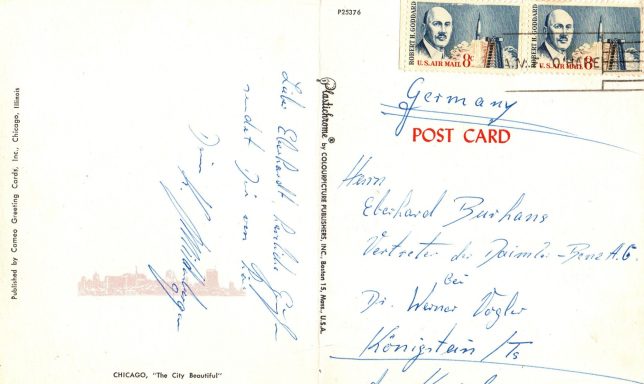 Published by Cameo Greeting Cards, Inc., Chicago, Illinois
Lieber Eberhardt, herzliche Grüße
sendet Dir von hier
Dein
CHICAGO, "The City Beautiful"
P25376
Plastichrome® by COLOURPICTURE PUBLISHERS, INC. Boston 15, Mass., U.S.A.
ROBERT H. GODDARD
U.S. AIR MAIL 8c
ROBERT H. GODDARD
U.S. AIR MAIL 8c
O'HARE
Germany
POST CARD
Herrn
Eberhard Burhans
Vertreter der Daimler-Benz A.G.
bei
Dr. Werner Vögler
Königstein /Ts